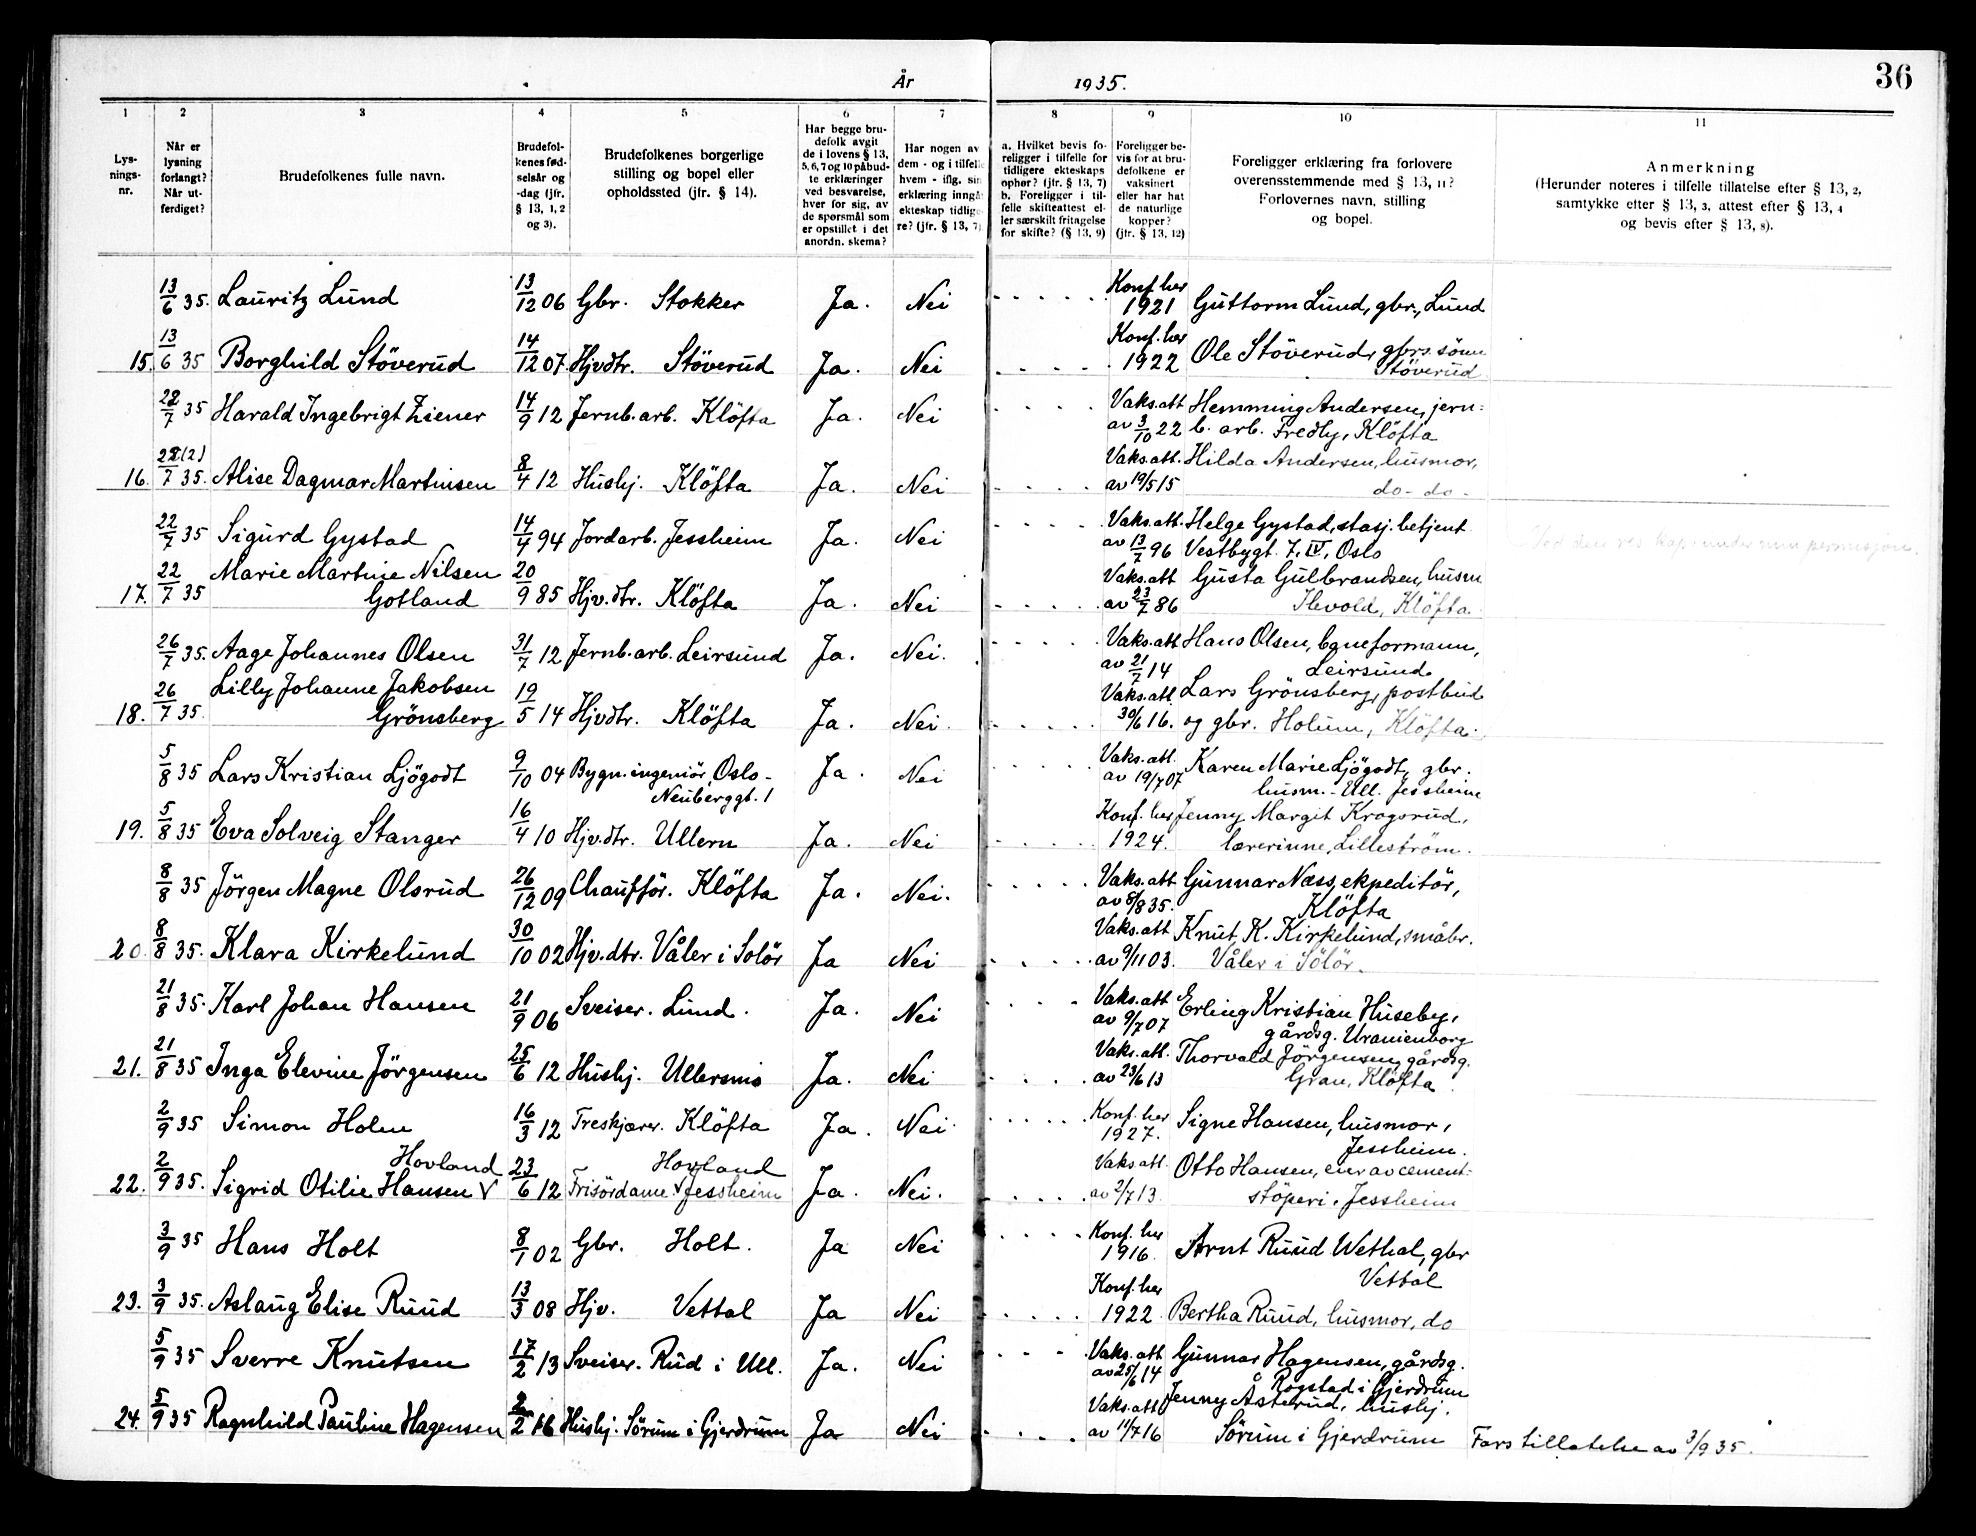 36
År 1935.
1 2 3 4 5 6 7 8 9 10 11
Lys-
nings-
nr.
Når er
lysning
forlangt?
Når ut-
ferdiget?
Brudefolkenes fulle navn.
Brudefol-
kenes fød-
selsår og
-dag (jfr.
§ 13, 1, 2
og 3).
Brudefolkenes borgerlige
stilling og bopel eller
opholdssted (jfr. § 14).
Har begge bru-
defolk avgit
de i lovens § 13,
5, 6, 7 og 10 påbud-
te erklæringer
ved besvarelse,
hver for sig, av
de spørsmål som
er opstillet i det
anordn. skema?
Har nogen av
dem - og i tilfelle
hvem - iflg. sin
erklæring inngå
ekteskap tidlige
re? (jfr. § 13, 7)
a. Hvilket bevis fo-
religger i tilfelle for
tidligere ekteskaps
ophør? (jfr. § 13, 7)
b. Foreligger i til-
felle skifteattest el-
ler særskilt fritagelse
for skifte? (§ 13, 9)
Foreligger be-
vis for at bru-
defolkene er
vaksinert
eller har hat
de naturlige
kopper?
(jfr. § 13, 12)
Foreligger erklæring fra forlovere
overensstemmende med § 13, 11?
Forlovernes navn, stilling
og bopel.
Anmerkning
(Herunder noteres i tilfelle tillatelse efter § 13, 2,
samtykke efter § 13, 3, attest efter § 13, 4
og bevis efter § 13, 8).
13/6 35. Lauritz Lund 13/12 06 Gbr. Stokker Ja. Nei . . . . . Konf. her 1921 Guttorm Lund, gbr., Lund
15. 13/6 35 Borghild Stöverud 14/12 07 Hjv.dtr. Stöverud Ja. Nei . . . . . Konf. her 1922 Ole Stöverud, gbrs. sönn
Stöverud.
22/7 35 Harald Ingebrigt Ziener 14/9 12 Jernb.arb. Klöfta Ja. Nei . . . . . Vaks.att av 3/10 22 Hemming Andersen, jern=
b. arb. Fredly, Klöfta
16. 22/7 (2) 35. Alise Dagmar Martinsen 8/4 12 Hushj. Klöfta Ja. Nei . . . . . Vaks.att. av 19/5 15 Hilda Andersen, husmor,
do - do -
22/7 35 Sigurd Gystad 14/4 94 Jordarb. Jessheim Ja. Nei . . . . . Vaks.att. av 13/7 96 Helge Gystad, stasj. betjent
Vestbygt. 7, IV, Oslo
17. 22/7 35 Marie Martine Nilsen
Gotland 20/9 85 Hjv.dtr. Klöfta Ja. Nei . . . . . Vaks.att av 23/7 86 Gusta Gulbrandsen, husm
Ilevold, Klöfta.
26/7 35. Aage Johannes Olsen 31/7 12 Jernb.arb. Leirsund Ja. Nei. . . . . . Vaks.att av 21/7 14 Hans Olsen, baneformann,
Leirsund
18. 26/7 35. Lilly Johanne Jakobsen
Grönsberg 19/5 14 Hjvdtr. Klöfta Ja. Nei. . . . . . Vaks.att 30/6 16. Lars Grönsberg, postbud
og gbr. Holum, Klöfta.
5/8 35 Lars Kristian Ljögodt 9/10 04 Bygn.ingeniör, Oslo-
Neuberggt. 1 Ja. Nei . . . . . Vaks.att. av 19/7 07 Karen Marie Ljögodt, gbr.
husm. - Ull. Jessheim
19. 5/8 35 Eva Solveig Stanger 16/4 10 Hjv.dtr. Ullern Ja. Nei . . . . . Konf. her 1924. Jenny Margit Krogsrud,
lærerinne, Lilleström.
8/8 35 Jörgen Magne Olsrud 26/12 09 Chaufför. Klöfta Ja. Nei. . . . . . Vaks.att av 6/8 35. Gunnar Næss, ekpeditör,
Klöfta
20. 8/8 35. Klara Kirkelund 30/10 02 Hjv.dtr. Våler i Solör Ja Nei . . . . . Vaks.att av 9/11 03. Knut K. Kirkelund, småbr.
Våler i Sölör.
21/8 35. Karl Johan Hansen 21/9 06 Sveiser. Lund. Ja. Nei . . . . . Vaks.att av 9/7 07 Erling Kristian Huseby,
gårdsg. Uranienborg
21. 21/8 35 Inga Elevine Jörgensen 25/6 12 Hushj. Ullersmo Ja. Nei . . . . . Vaks.att. av 23/6 13 Thorvald Jörgensen, gårdsg.
Gran, Klöfta.
2/9 35 Simon Holm 16/3 12 Treskjærer. Klöfta Ja. Nei . . . . . Konf. her 1927. Signe Hansen, husmor,
Jessheim.
22. 2/9 35. Sigrid Otilie Hansen √ Hovland 23/6 12 Frisördame √ Hovland Jessheim Ja. Nei. . . . . . Vaks.att. av 2/7 13. Otto Hansen, eier av cement-
stöperi, Jessheim
3/9 35 Hans Holt 8/1 02 Gbr. Holt. Ja Nei . . . . . Konf. her 1916. Arnt Ruud Wethal, gbr
Vettal
23. 3/9 35. Aslaug Elise Ruud 13/3 08 Hjv. Vettal Ja Nei . . . . . Konf. her 1922. Bertha Ruud, husmor, do
5/9 35 Sverre Knutsen 17/2 13 Sveiser. Rud i Ull. Ja. Nei . . . . . Vaks.att av 25/6 14 Gunnar Hagensen, gårdsg.
Å Rogstad i Gjerdrum
24. 5/9 35 Ragnhild Pauline Hagensen 2/2 16 Hushj. Sörum i Gjerdrum Ja Nei . . . . . Vaks.att av 11/7 16 Jenny Asterud, hushj.
Sörum i Gjerdrum Fars tillatelse av 3/9 35.